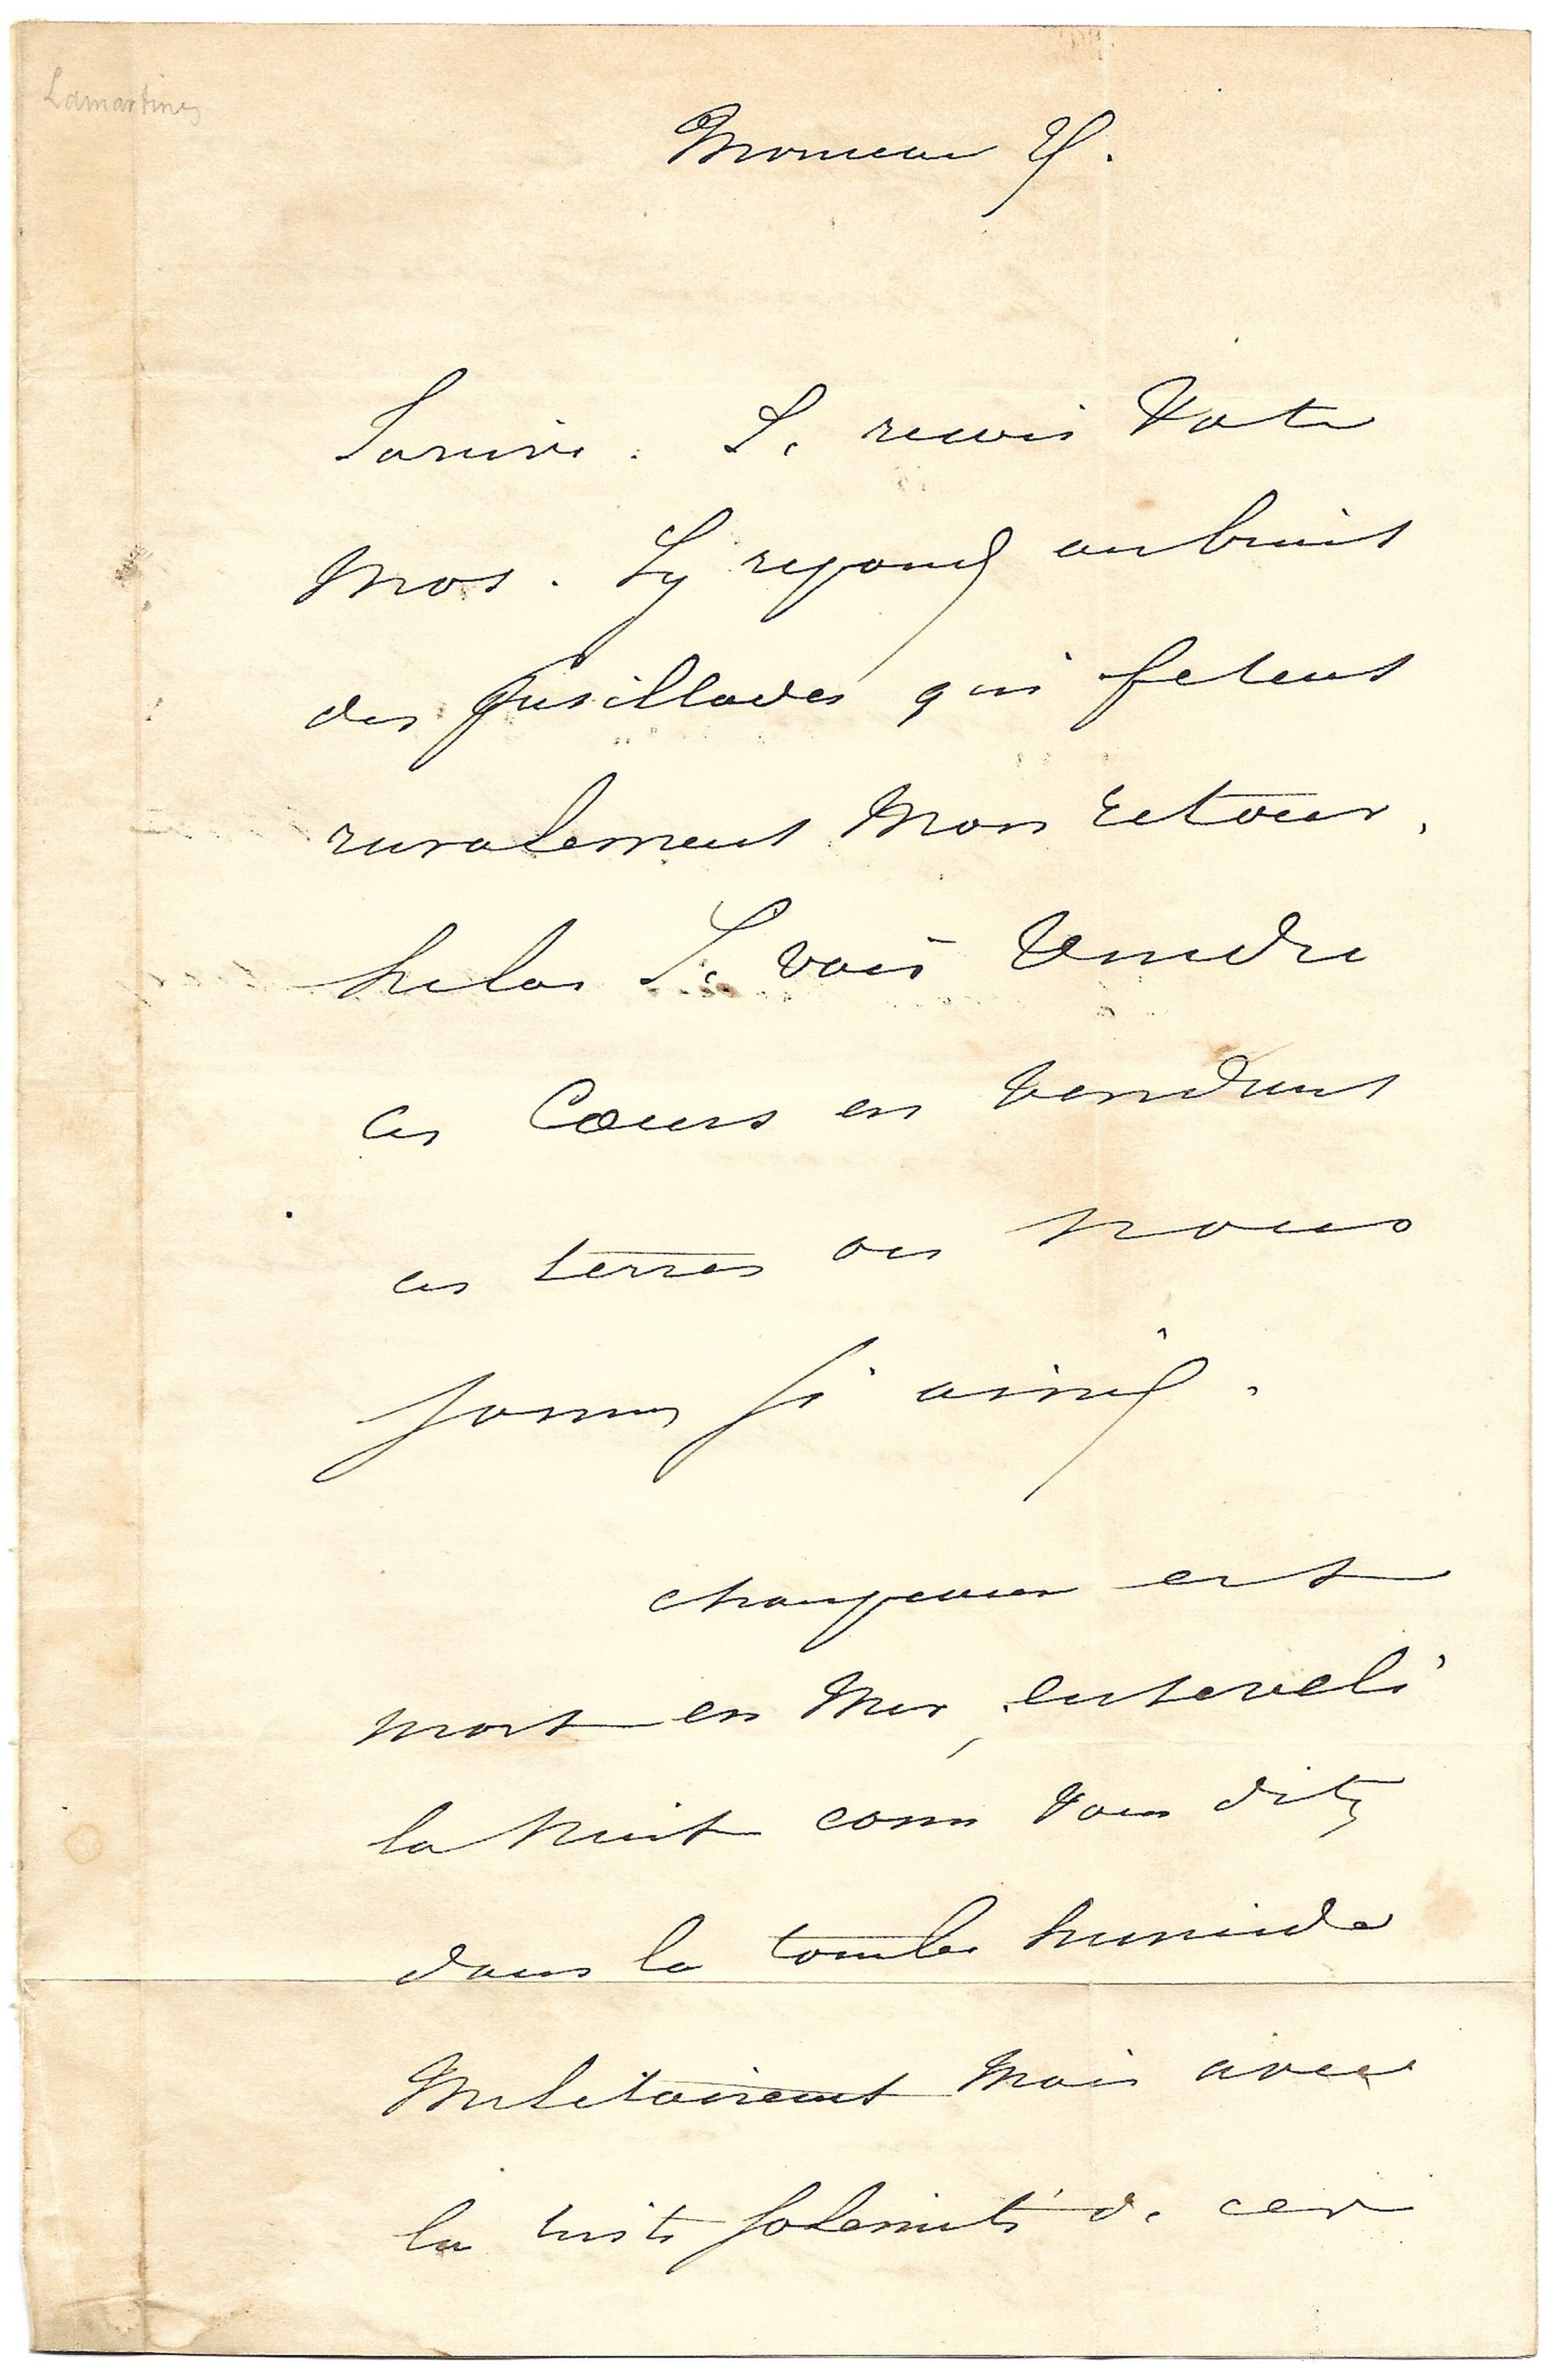 Lamartine
Monceau
J'arrive. Je recois Votre
Mot. J'y repond au bruit
des fusillades qui fetent
ruralement Mon retour.
helas Je vais Vendre
ces Coeurs en vendant
ces terres ou nous
sommes si aimés.
est
mort en Mer, enseveli
la Nuit comm Vous dites
dans la tombe humide
Militairement Mais avec
la triste solennité de ces